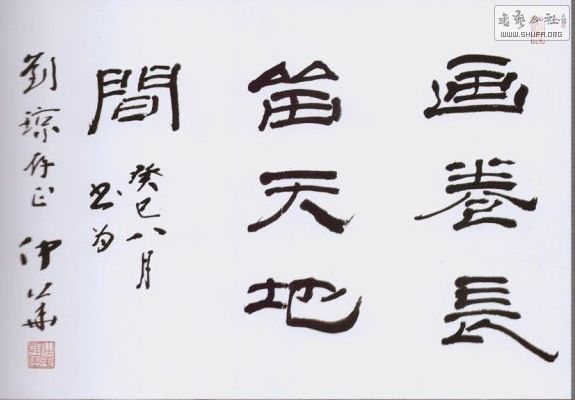 書藝公社
WWW.SHUFA.ORG
画卷長
留天地
間
癸巳八月
书为
劉琼存正 仲華